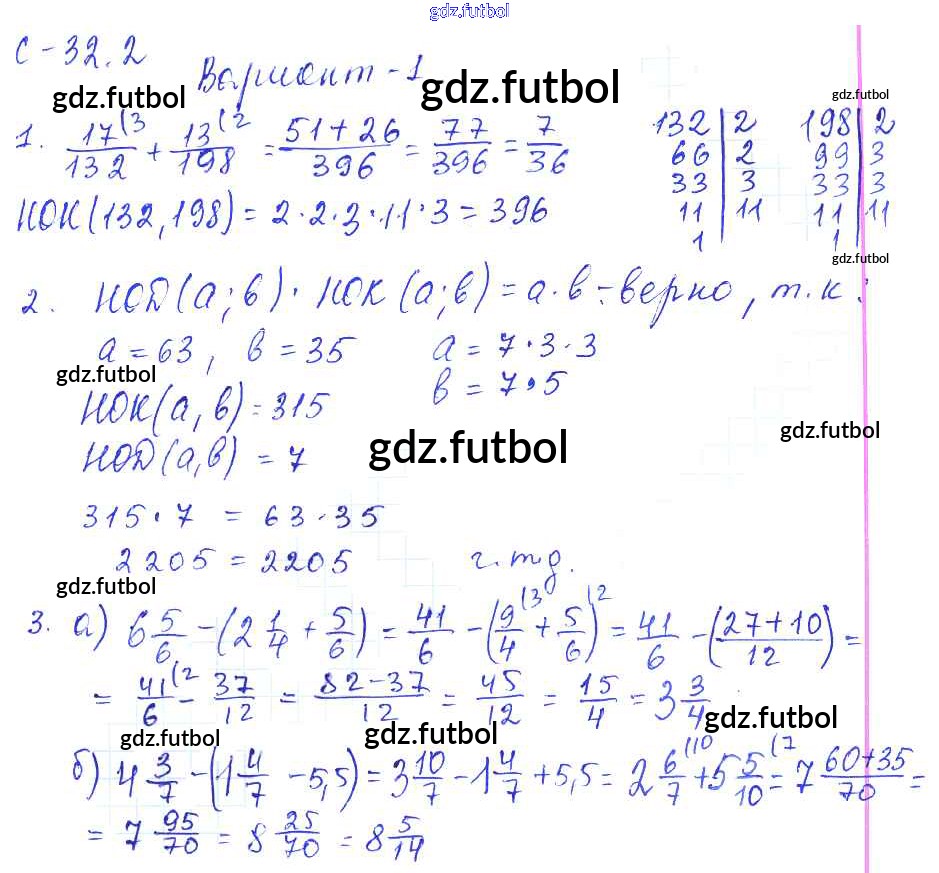 gdz.futbol
С-32.2
Вариант-1
gdz.futbol gdz.futbol gdz.futbol
1. 17(3/132 + 13(2/198 = 51+26/396 = 77/396 = 7/36
НОК(132,198) = 2·2·3·11·3 = 396
132 | 2
66 | 2
33 | 3
11 | 11
1
198 | 2
99 | 3
33 | 3
11 | 11
1
gdz.futbol
2. НОД(а;в)·НОК(а;в) = а·в - верно, т.к:
а = 63, в = 35 а = 7·3·3
gdz.futbol в = 7·5
НОК(а,в) = 315
gdz.futbol gdz.futbol
НОД(а,в) = 7
315·7 = 63·35
2205 = 2205 ч.т.д.
gdz.futbol
3. а) 6 5/6 - (2 1/4 + 5/6) = 41/6 - (9/4(3 + 5/6)(2 = 41/6 - (27+10/12) =
= 41/6(2 - 37/12 = 82-37/12 = 45/12 = 15/4 = 3 3/4
gdz.futbol gdz.futbol gdz.futbol
б) 4 3/7 - (1 4/7 - 5,5) = 3 10/7 - 1 4/7 + 5,5 = 2 6/7(10 + 5 5/10(7 = 7 60+35/70 =
= 7 95/70 = 8 25/70 = 8 5/14